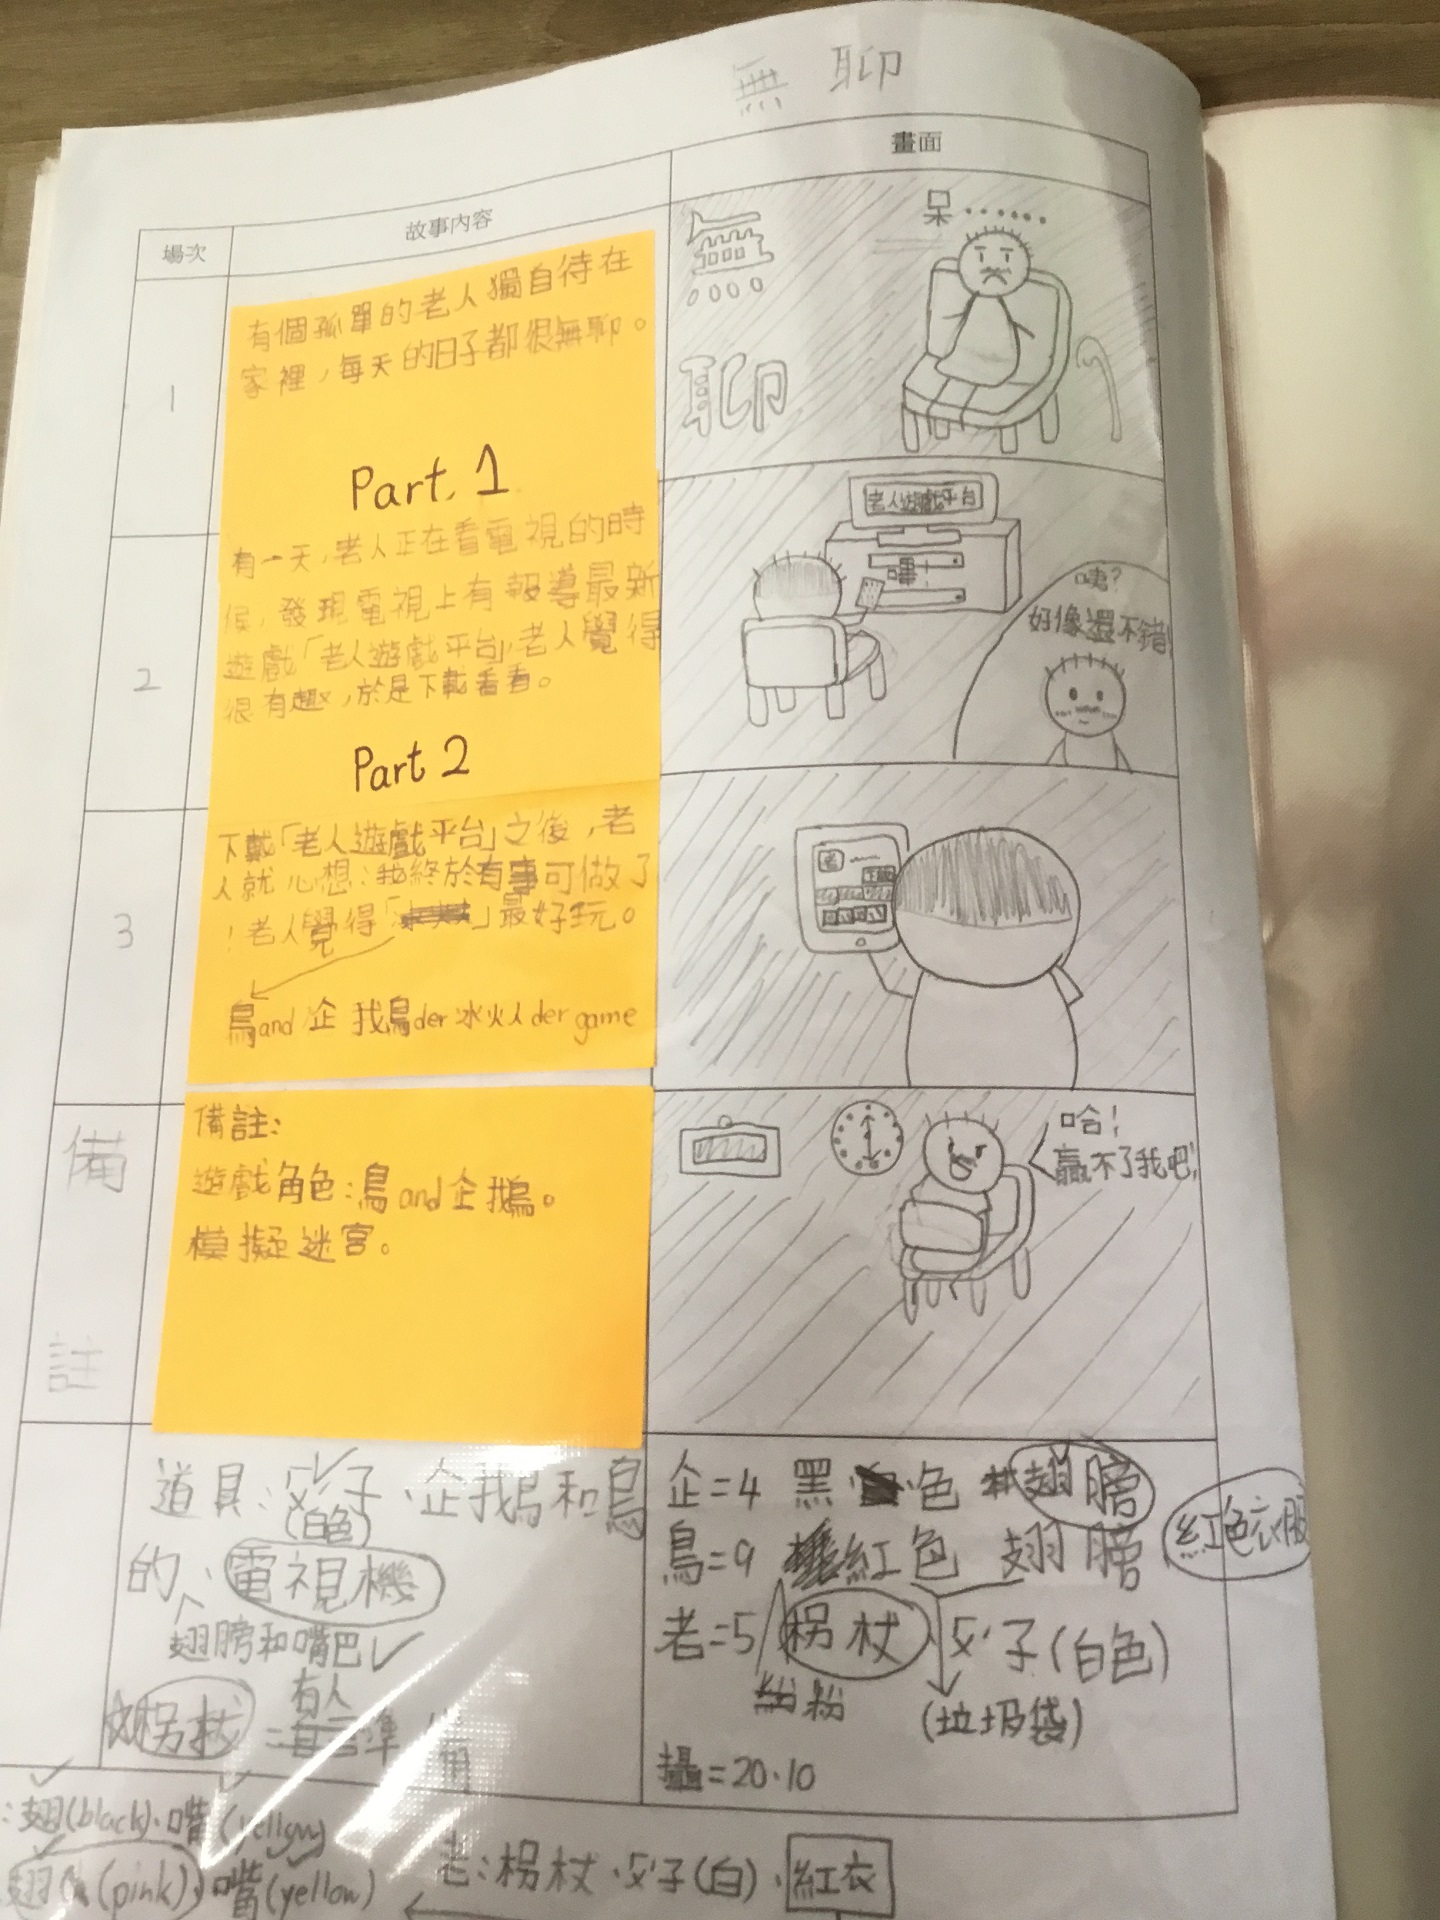 無聊
場次
故事內容
畫面
1
有個孤單的老人獨自待在
家裡，每天的日子都很無聊。
Part. 1
無
聊
呆······
2
有一天，老人正在看電視的時
候，發現電視上有報導最新
遊戲「老人遊戲平台」，老人覺得
很有趣，於是下載看看。
Part 2
老人遊戲平台
嗶！
咦？
好像還不錯！
3
下載「老人遊戲平台」之後，老
人就心想：我終於有事可做了
！老人覺得「」最好玩。
鳥and 企鵝鳥der 冰火人der game
老
下載
備註
備註：
遊戲角色：鳥and企鵝。
模擬迷宮。
哈！
贏不了我吧！
道具：子、企鵝和鳥
(白色)
的、電視機
翅膀和嘴巴✓
☆拐杖
有人
準備
企=4 黑色 翅膀
鳥=9 紅色 翅膀
紅色衣服
老=5 拐杖 子(白色)
粉
(垃圾袋)
攝=20.10
:翅(black)、嘴(yellow)
翅(pink)、嘴(yellow)
老:拐杖、子(白)、紅衣